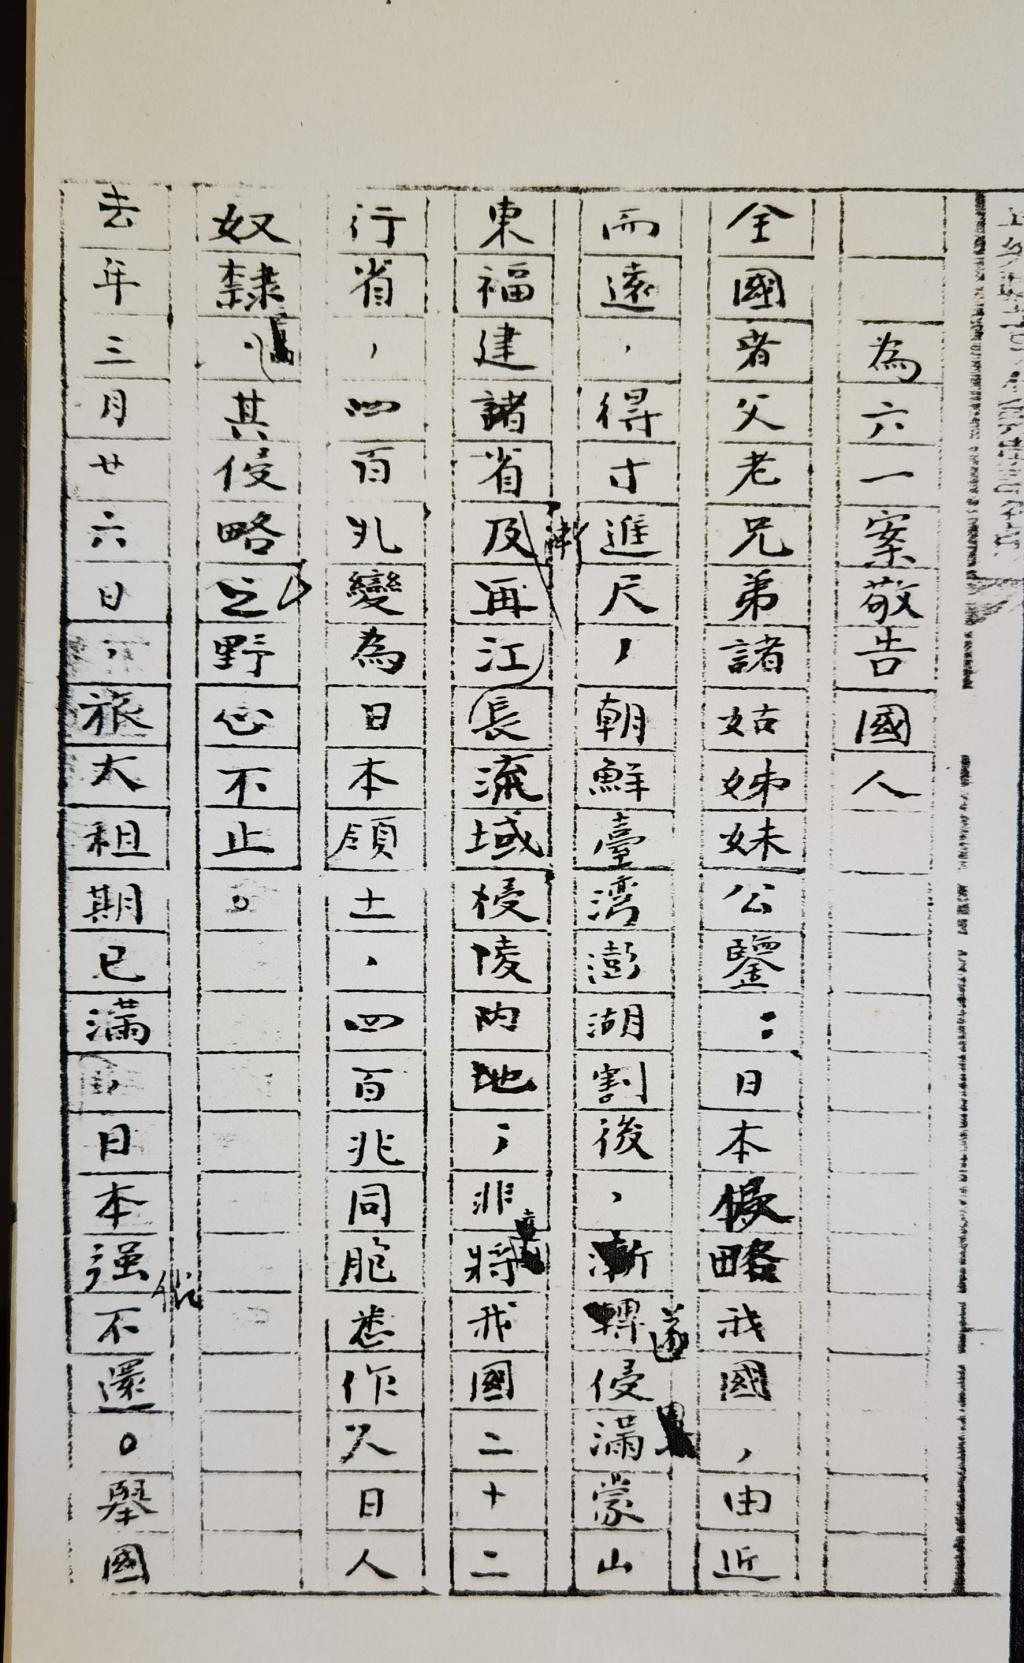 為六一案敬告國人
全國耆父老兄弟諸姑姊妹公鑒：日本侵略我國，由近
而遠，得寸進尺，朝鮮臺灣澎湖割後，遂侵滿蒙山
東福建諸省及再江長流域侵陵內地；非將我國二十二
行省，四百兆變為日本領土，四百兆同胞悉作久日人
奴隸，其侵略之野心不止。
去年三月廿六日，旅大租期已滿，日本强不還。舉國